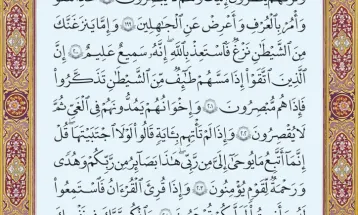 وَأْمُرْ بِالْعُرْفِ وَأَعْرِضْ عَنِ الْجَٰهِلِينَ ۝١٩٩ وَإِمَّا يَنزَغَنَّكَ
مِنَ الشَّيْطَٰنِ نَزْغٌ فَاسْتَعِذْ بِاللَّهِ ۚ إِنَّهُۥ سَمِيعٌ عَلِيمٌ ۝٢٠٠ إِنَّ
الَّذِينَ اتَّقَوْا۟ إِذَا مَسَّهُمْ طَٰٓئِفٌ مِّنَ الشَّيْطَٰنِ تَذَكَّرُوا۟
فَإِذَا هُم مُّبْصِرُونَ ۝٢٠١ وَإِخْوَٰنُهُمْ يَمُدُّونَهُمْ فِى الْغَىِّ ثُمَّ
لَا يُقْصِرُونَ ۝٢٠٢ وَإِذَا لَمْ تَأْتِهِم بِـَٔايَةٍ قَالُوا۟ لَوْلَا اجْتَبَيْتَهَا ۚ قُلْ
إِنَّمَآ أَتَّبِعُ مَا يُوحَىٰٓ إِلَىَّ مِن رَّبِّى ۚ هَٰذَا بَصَآئِرُ مِن رَّبِّكُمْ وَهُدًى
وَرَحْمَةٌ لِّقَوْمٍ يُؤْمِنُونَ ۝٢٠٣ وَإِذَا قُرِئَ الْقُرْءَانُ فَاسْتَمِعُوا۟